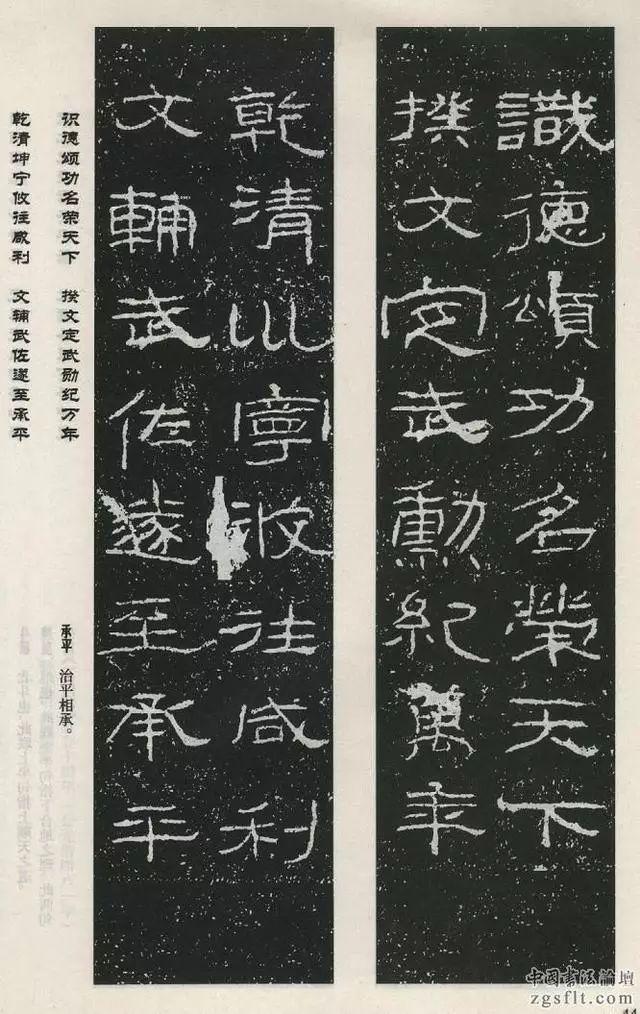 識德頌功名榮天下
撰文定武勳紀萬年
乾清巛寧攸往咸利
文輔武佐遂至承平
识德颂功名荣天下 撰文定武勋纪万年
乾清坤宁攸往咸利 文辅武佐遂至承平
承平 治平相承。
中国书法論壇
zgsflt.com
44